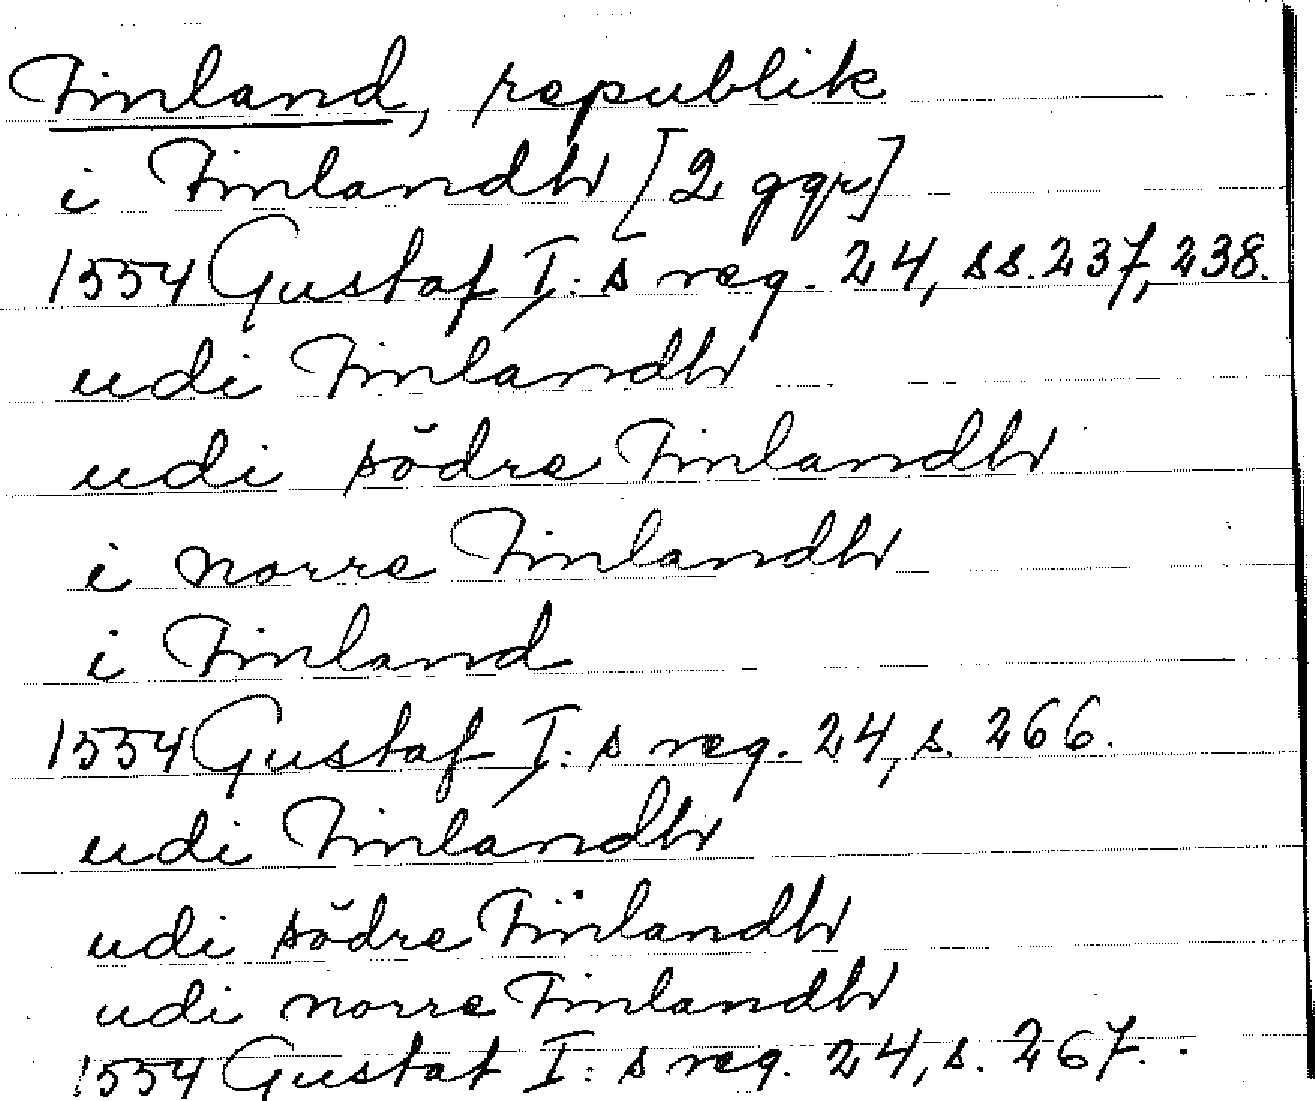 Finland, republik
i Finlandh [2 ggr]
1554 Gustaf I:s reg. 24, ss. 237, 238.
udi Finlandh
udi södre Finlandh
i norre Finlandh
i Finland
1554 Gustaf I:s reg. 24, s. 266.
udi Finlandh
udi södre Finlandh
udi norre Finlandh
1554 Gustaf I:s reg. 24, s. 267.